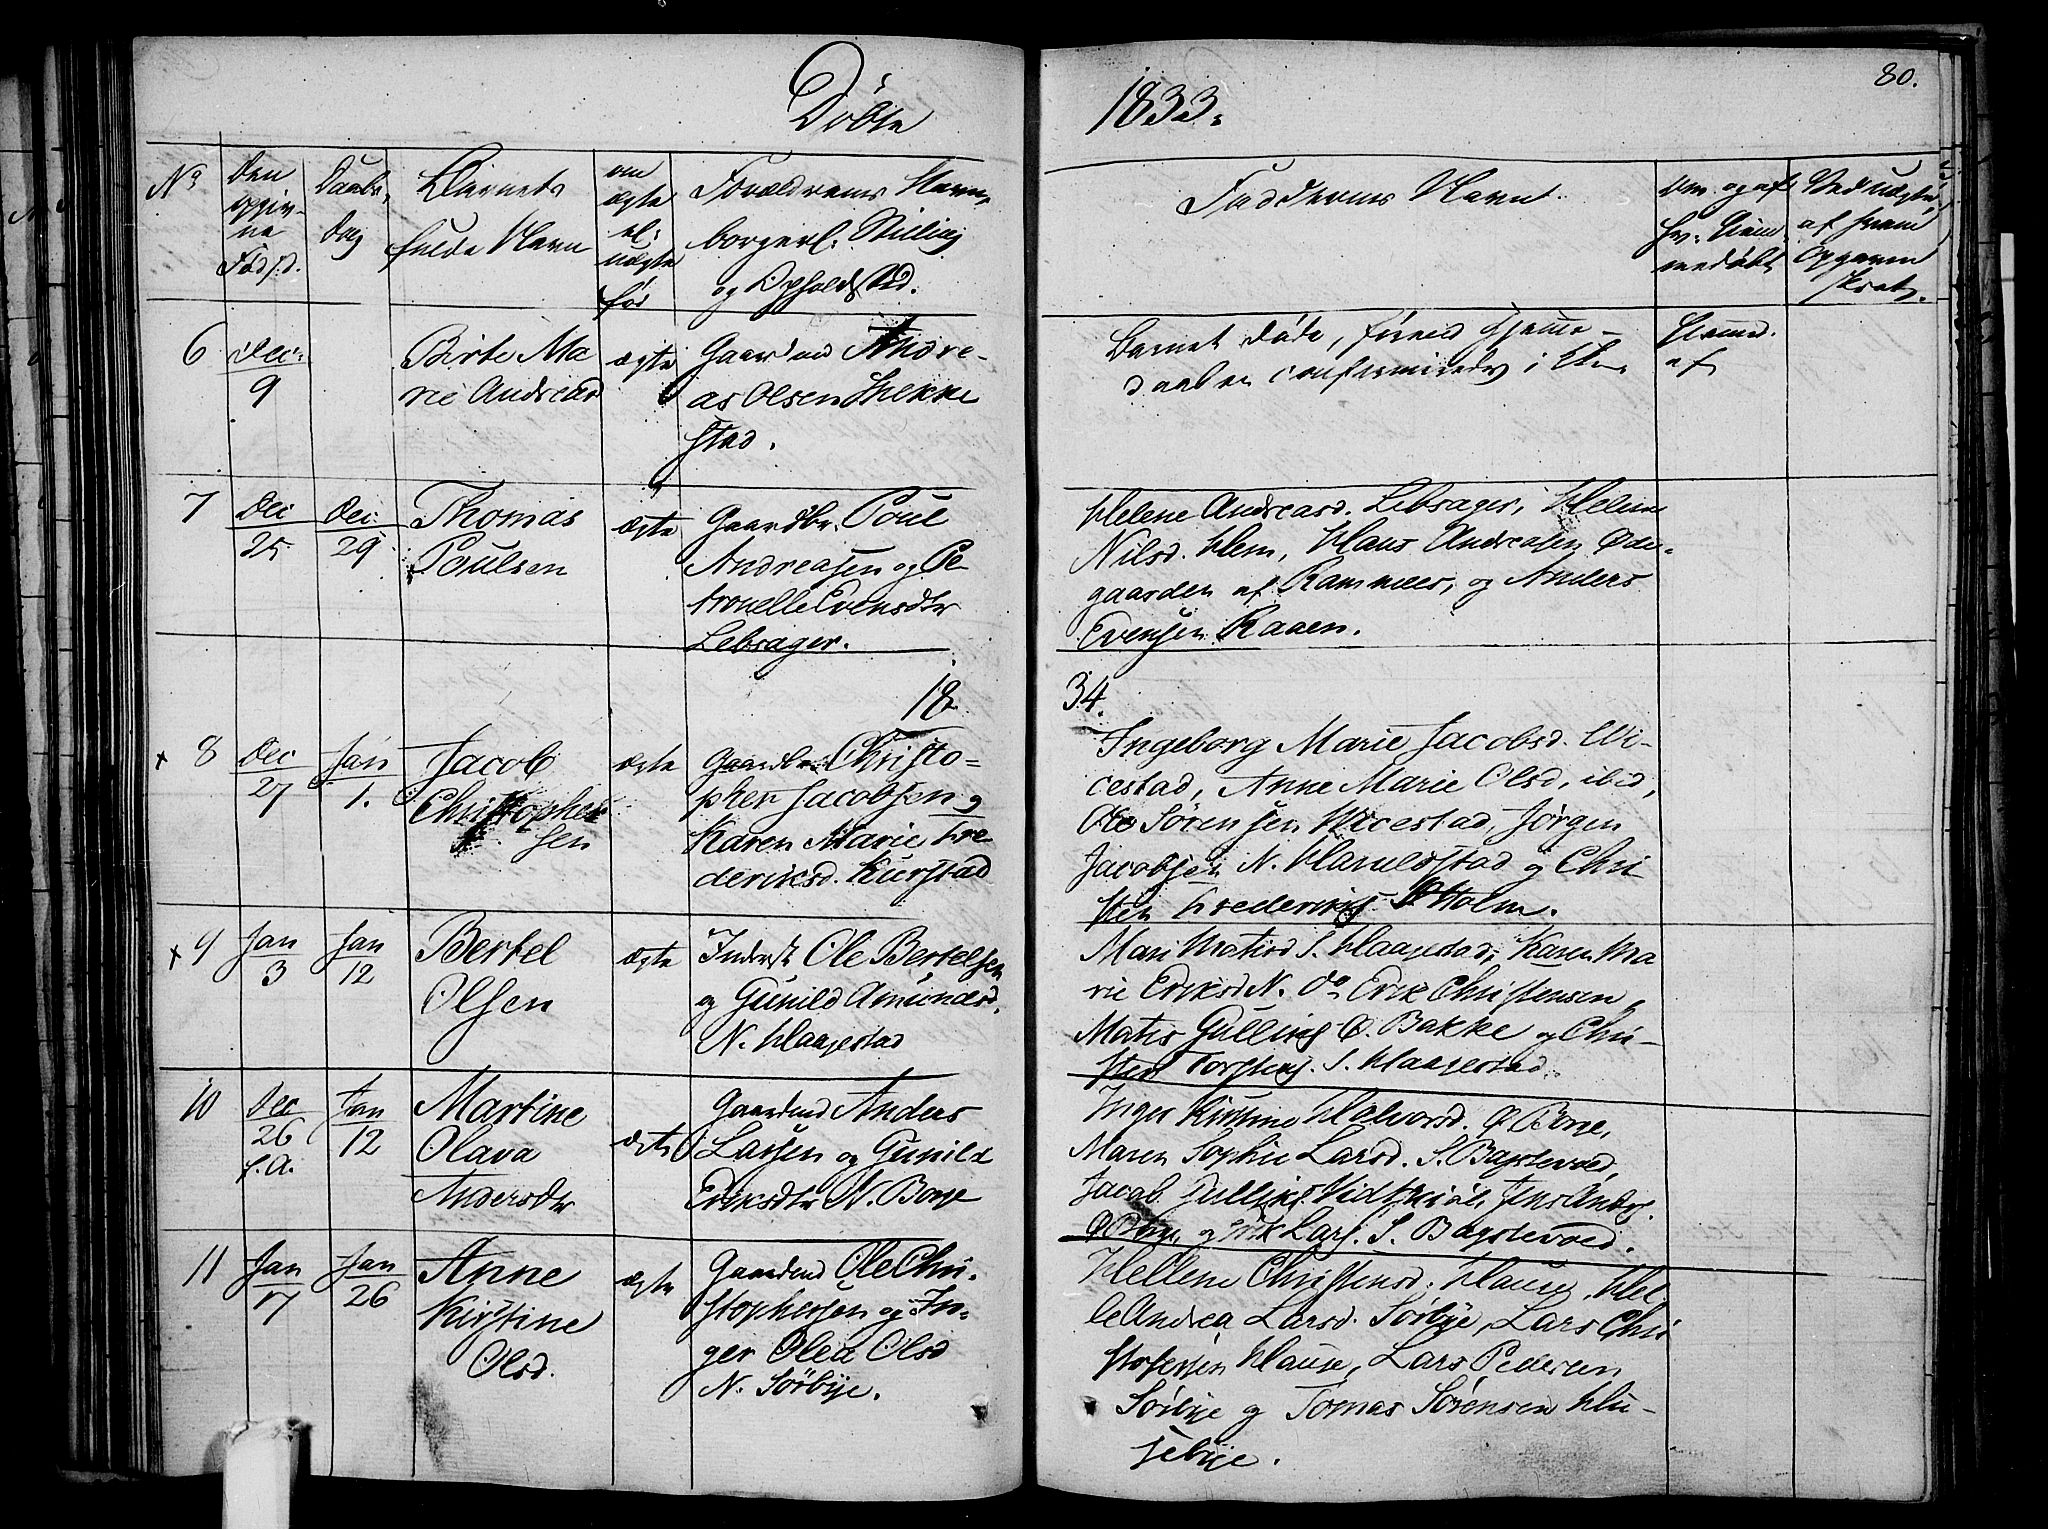 80.
Döbte
1833.
No
Den
opgiv-
ne
Fødsd.
Daabs-
dag
Barnets
fulde Navn
om
ægte
el.
uægte
før
Forældrenes Navn,
borgerl. Stilling
og Opholdsted.
Faddernes Navne.
Om og af
hv. Hiem-
medøbt
6
Dec.
9
Birte Ma
rie Andreasd
ægte
Gaardmd Andre-
as Olsen
stad.
Barnet døde, førend Hjemme-
daaben i
Hiemd.
af
7
Dec
25
Dec.
29
Thomas
Poulsen
ægte
Gaardbr. Poul
Andreasen og Pe
tronelle Evensdtr
Lebsager.
Helene Andreasd. Lebsager, Helene
Nilsd. Hem, Hans Andreasen Øde-
gaarden af Ramnæs, og Anders
Evensen Raaen.
18
34.
+ 8
Dec
27
Jan
1.
Jacob
Christopher
sen
ægte
Gaardbr Christo-
pher Jacobsen og
Karen Marie Fre
deriksd.
Ingeborg Marie Jacobsd. Wi-
cestad, Anne Marie Olsd, ibid,
Ole Sørensen Wicestad, Jørgen
Jacobsen N. Haraldstad og Chri
sten Frederiks Holm.
+ 9
Jan
3
Jan
12
Bertel
Olsen
ægte
Inderst Ole Bertelsen
og Gunild Amundsd.
N. Haagestad
Mari Matisd S. Haagestad, Karen Ma
rie Eriksd N. do Erik Christensen
Matis Gulliks Ø. Bakke og Chri-
sten Torstens. S. Haagestad.
10
Dec
26
f.A.
Jan
12
Martine
Olava
Andersdtr
ægte
Gaardmd Anders
Larsen og Gunild
Eriksdtr N. Borge
Inger Kirstine Halvorsd. Ø Borge,
Maren Sophie Larsd. S. Bagstevold,
Jacob Gulliks. Jens Anders.
Ø Borge, og Erik Lars. S. Bagstevold.
11
Jan
17
Jan
26
Anne
Kirstine
Olsd.
ægte
Gaardmd Ole Chri-
stophersen og In-
ger Olea Olsd
N. Sörbye.
Hellene Christensd. Hause, Hel
le Andrea Larsd. Sørbye, Lars Chri
stofersen Hause, Lars Pedersen
Sörbye og Tomas Sørensen Hu-
sebye.